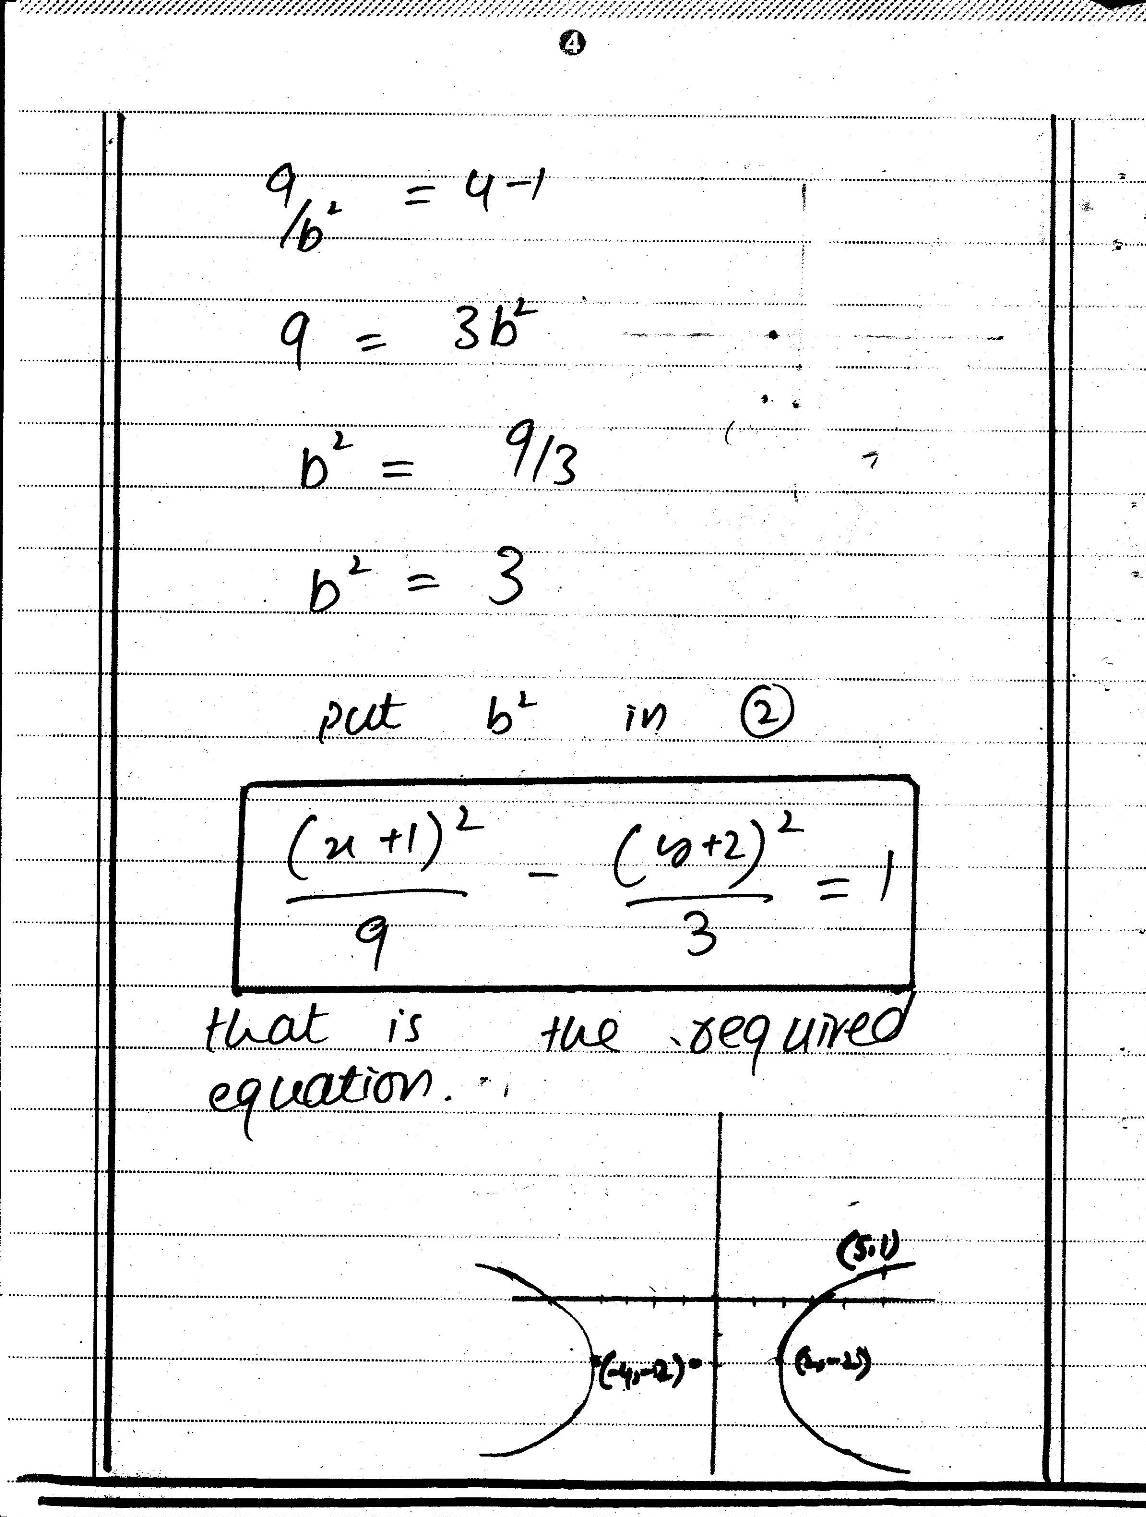 4
9/b² = 4-1
9 = 3b²
b² = 9/3
b² = 3
put b² in ②
(x+1)²/9 - (y+2)²/3 = 1
that is the required
equation.
(5,1)
(-4,-2)
(2,-2)